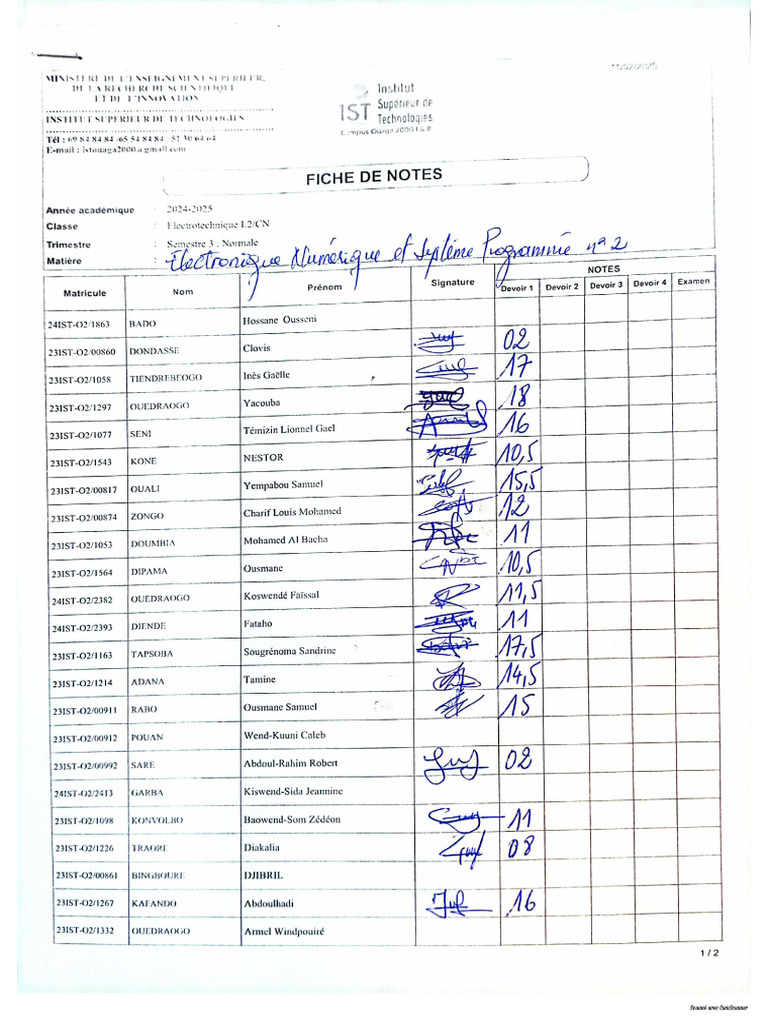 11/02/2025
MINISTERE DE L'ENSEIGNEMENT SUPERIEUR,
DE LA RECHERCHE SCIENTIFIQUE
ET DE L'INNOVATION
INSTITUT SUPERIEUR DE TECHNOLOGIES
Tél : 69 84 84 84 /65 54 84 84 / 51 30 64 64
E-mail : istouaga2000@gmail.com
IST Institut
Supérieur de
Technologies
Campus Ouaga 2000 I & II
FICHE DE NOTES
Année académique : 2024-2025
Classe : Electrotechnique L2/CN
Trimestre : Semestre 3 : Normale
Matière : Electronique Numérique et Système Programmée n°2
Matricule Nom Prénom Signature NOTES
Devoir 1 Devoir 2 Devoir 3 Devoir 4 Examen
24IST-O2/1863 BADO Hossane Ousseni
23IST-O2/00860 DONDASSE Clovis 02
23IST-O2/1058 TIENDREBEOGO Inès Gaëlle 17
23IST-O2/1297 OUEDRAOGO Yacouba 18
23IST-O2/1077 SENI Témizin Lionnel Gael 16
23IST-O2/1543 KONE NESTOR 10,5
23IST-O2/00817 OUALI Yempabou Samuel 15,5
23IST-O2/00874 ZONGO Charif Louis Mohamed 12
23IST-O2/1053 DOUMBIA Mohamed Al Bacha 11
23IST-O2/1564 DIPAMA Ousmane 10,5
24IST-O2/2382 OUEDRAOGO Koswendé Faïssal 11,5
24IST-O2/2393 DIENDE Fataho 11
23IST-O2/1163 TAPSOBA Sougrénoma Sandrine 17,5
23IST-O2/1214 ADANA Tamine 14,5
23IST-O2/00911 RABO Ousmane Samuel 15
23IST-O2/00912 POUAN Wend-Kuuni Caleb
23IST-O2/00992 SARE Abdoul-Rahim Robert 02
24IST-O2/2413 GARBA Kiswend-Sida Jeannine
23IST-O2/1098 KONVOLBO Baowend-Som Zédéon 11
23IST-O2/1226 TRAORE Diakalia 08
23IST-O2/00861 BINGBOURE DJIBRIL
23IST-O2/1267 KAFANDO Abdoulhadi 16
23IST-O2/1332 OUEDRAOGO Armel Windpouiré
1 / 2
Scanné avec CamScanner